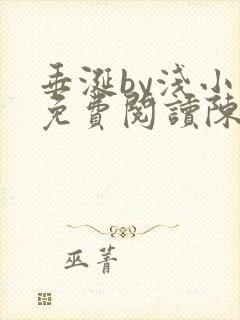 垂涎by浅小
免費閱讀陳
巫菁